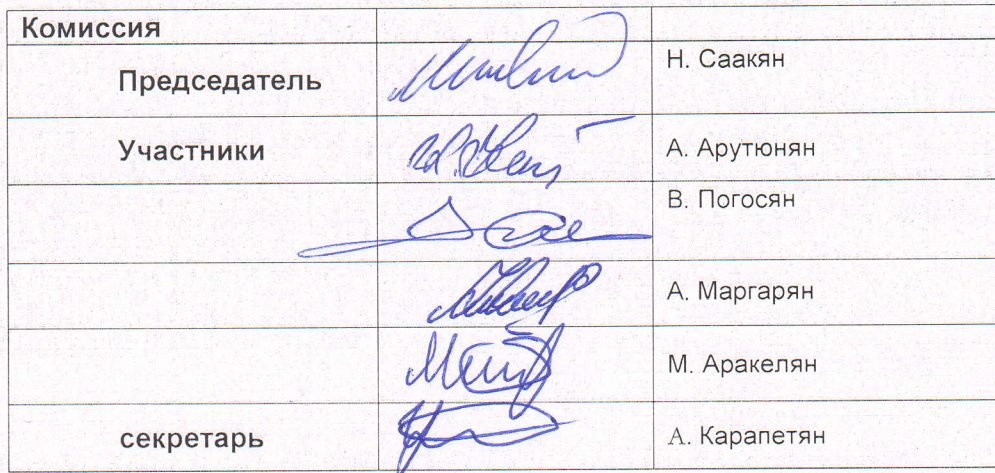 Комиссия
Председатель Н. Саакян
Участники А. Арутюнян
В. Погосян
А. Маргарян
М. Аракелян
секретарь А. Карапетян